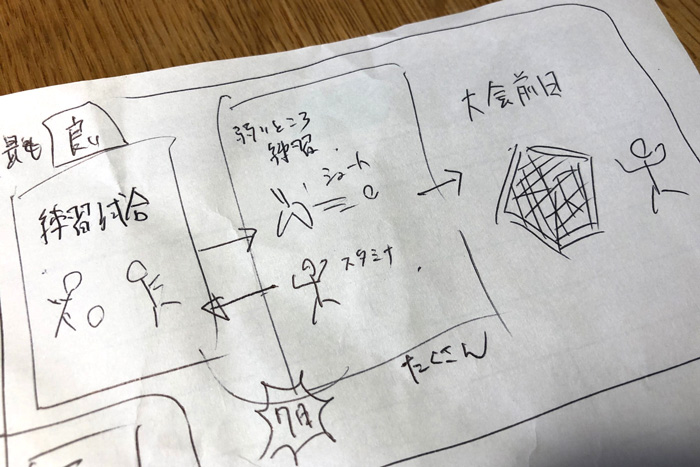 最も
良い
練習試合
弱いところ
練習
シュート
スタミナ
たくさん
7日
大会前日